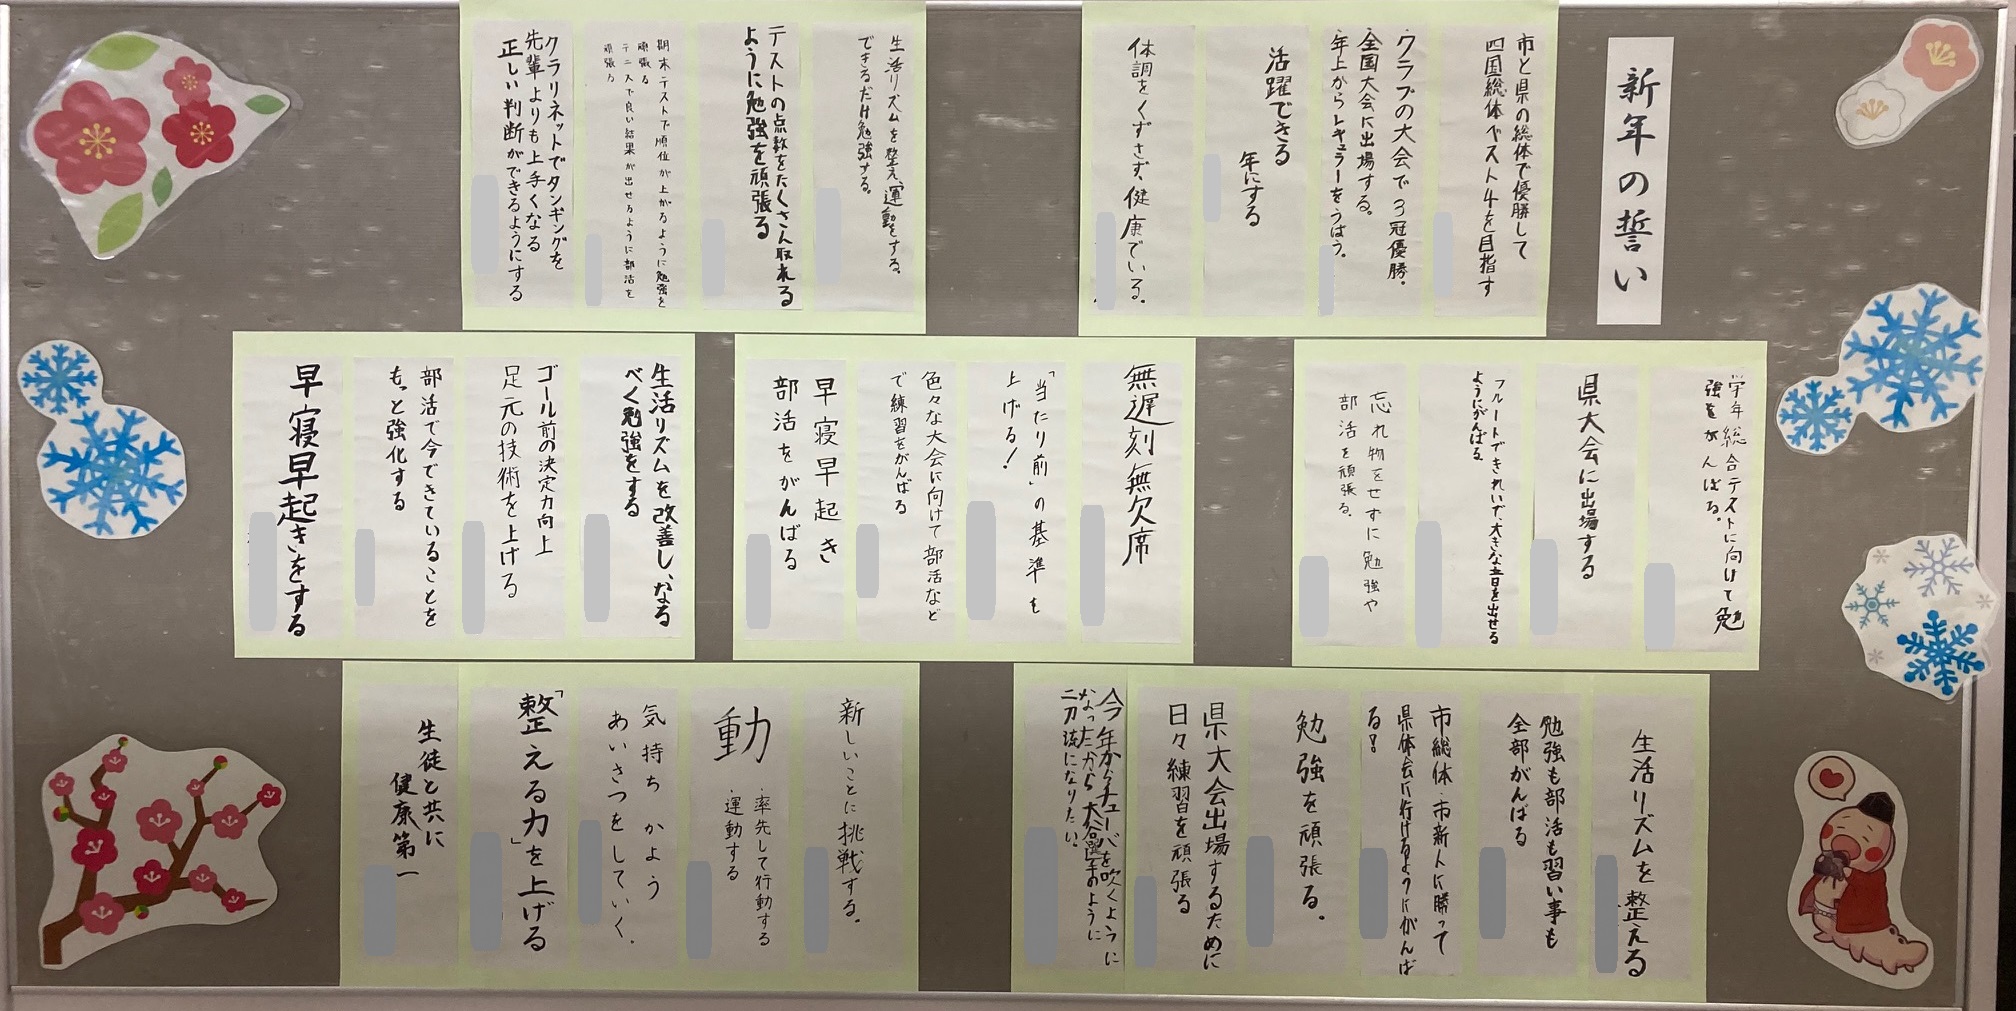 新年の誓い
市と県の総体で優勝して
四国総体ベスト4を目指す
クラブの大会で3冠優勝。
全国大会に出場する。
年上からレギュラーをうばう。
活躍できる
年にする
体調をくずさず、健康でいる。
生活リズムを整え、運動をする。
できるだけ勉強する。
テストの点数をたくさん取れる
ように勉強を頑張る
期末テストで順位が上がるように勉強を
頑張る
テニスで良い結果が出せるように部活を
頑張る
クラリネットでタンギングを
先輩よりも上手くなる
正しい判断ができるようにする
学年総合テストに向けて勉
強をがんばる。
県大会に出場する
フルートできれいで、大きな音を出せる
ようにがんばる。
忘れ物をせずに勉強や
部活を頑張る。
無遅刻無欠席
「当たり前」の基準を
上げる!
色々な大会に向けて部活など
で練習をがんばる
早寝早起き
部活をがんばる
生活リズムを改善し、なる
べく勉強をする
ゴール前の決定力向上
足元の技術を上げる
部活で今できていることを
もっと強化する
早寝早起きをする
生活リズムを整える
勉強も部活も習い事も
全部がんばる
市総体・市新人に勝って
県体会に行けるようにがんば
る!
勉強を頑張る。
県大会出場するために
日々練習を頑張る
今年からチューバを吹くように
なったから大谷選手のように
二刀流になりたい。
新しいことに挑戦する。
動
・率先して行動する
・運動する
気持ちかよう
あいさつをしていく。
「整える力」を上げる
生徒と共に
健康第一